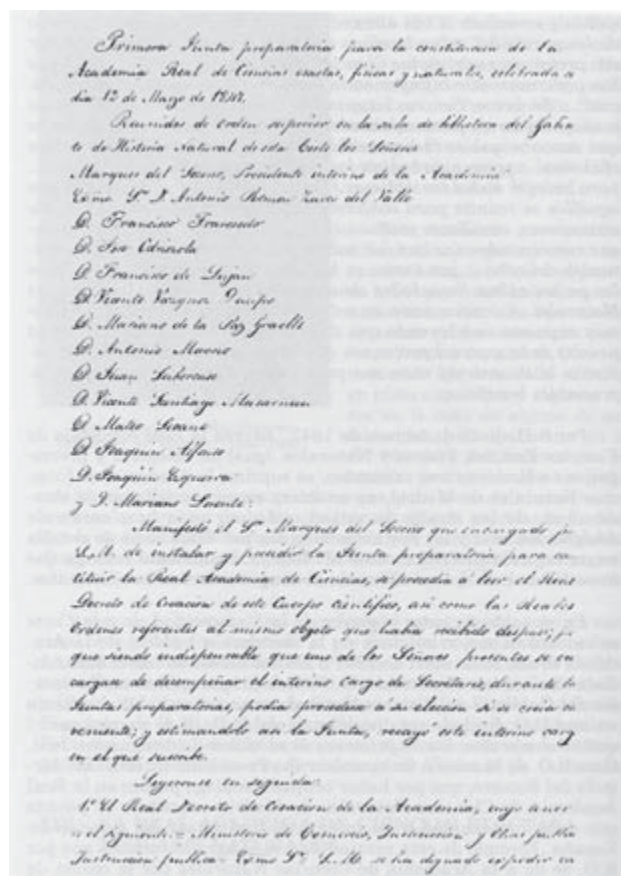 Primera Junta preparatoria para la constitucion de la
Academia Real de Ciencias exactas, fisicas y naturales, celebrada a
dia 12 de Marzo de 1848.
Reunidos de orden superior en la sala de biblioteca del Gabine
te de Historia Natural de esta Corte los Señores
Marques del Socorro, Presidente interino de la Academia
Excmo Sr. D. Antonio Remon Zarco del Valle
D. Francisco Travesedo
D. José Odriozola
D. Francisco de Luján
D. Vicente Vazquez Queipo
D. Mariano de la Paz Graells
D. Antonio Moreno
D. Juan Subercase
D. Vicente Santiago Masarnau
D. Mateo Seoane
D. Joaquin Alfonso
D. Joaquin Ezquerra
y D. Mariano Lorente:
Manifestó el Sr. Marques del Socorro que encargado po
S. M. de instalar y presidir la Junta preparatoria para co
tituir la Real Academia de Ciencias, se procedia a leer el Real
Decreto de Creacion de este Cuerpo cientifico, asi como las Reales
ordenes referentes al mismo objeto que habia recibido despues; y
que siendo indispensable que uno de los Señores presentes se en
cargase de desempeñar el interino cargo de Secretario, durante las
Juntas preparatorias, podia procederse a su eleccion si se creia con
veniente; y estimandolo asi la Junta, recayó este interino carg
en el que suscribe.
Leyeronse en seguida:
1º El Real Decreto de Creacion de la Academia, cuyo tenor
es el siguiente = Ministerio de Comercio, Instruccion y Obras publi
Instruccion publica = Excmo Sr. S. M. se ha dignado expedir